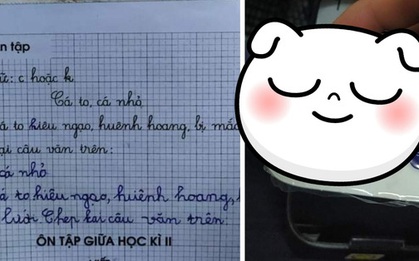 n tập
: c hoặc k
Cá to, cá nhỏ
á to kiêu ngạo, huênh hoang, bị mắc
ại câu văn trên:
cá nhỏ
á to kiêu ngạo, huiênh hoang,
lưới Chép lại câu văn trên
ÔN TẬP GIỮA HỌC KÌ II